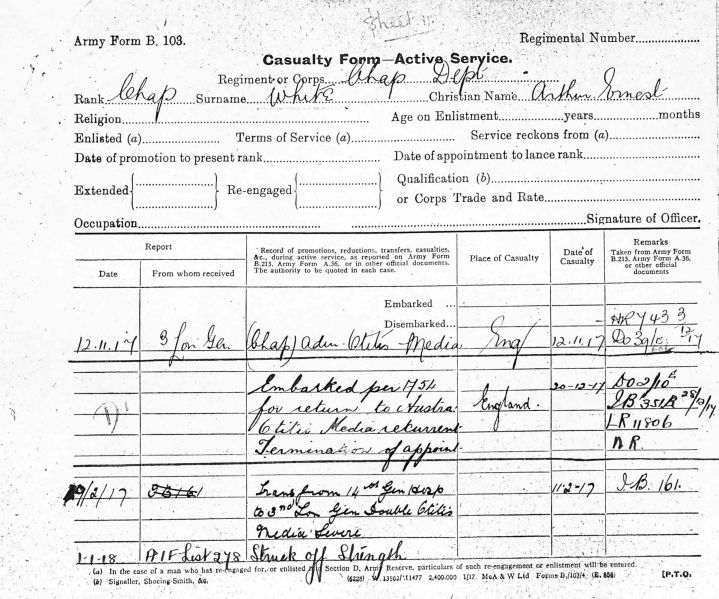 Sheet 11.
Army Form B. 103.
Regimental Number
Casualty Form—Active Service.
Regiment or Corps Chap Dept
Rank Chap Surname White Christian Name Arthur Ernest
Religion Age on Enlistment years months
Enlisted (a) Terms of Service (a) Service reckons from (a)
Date of promotion to present rank Date of appointment to lance rank
Extended Re-engaged Qualification (b)
or Corps Trade and Rate
Occupation Signature of Officer.
Report
Date From whom received
Record of promotions, reductions, transfers, casualties,
&c., during active service, as reported on Army Form
B.213, Army Form A.36, or in other official documents.
The authority to be quoted in each case.
Place of Casualty
Date of
Casualty
Remarks
Taken from Army Form
B.213, Army Form A.36,
or other official
documents
Embarked ...
Disembarked...
12.11.17 3 Lon Gen (Chap) Adm. Otitis Media Eng 12.11.17
Embarked per 1754 20-12-17
for return to Austra England.
Otitis Media recurrent LR 11806
Termination of appoint. N.R.
/2/17 Trans from 14 Gen Hosp 11-2-17 I.B. 161.
to 3rd Lon Gen Double Otitis
Media Severe
1-1-18 AIF List 278 Struck off Strength
(a) In the case of a man who has re-engaged for, or enlisted into Section D, Army Reserve, particulars of such re-engagement or enlistment will be entered.
(b) Signaller, Shoeing-Smith, &c. 2,400,000 1/17 McA & W Ltd Forms B./103/4 (E. 856) [P.T.O.